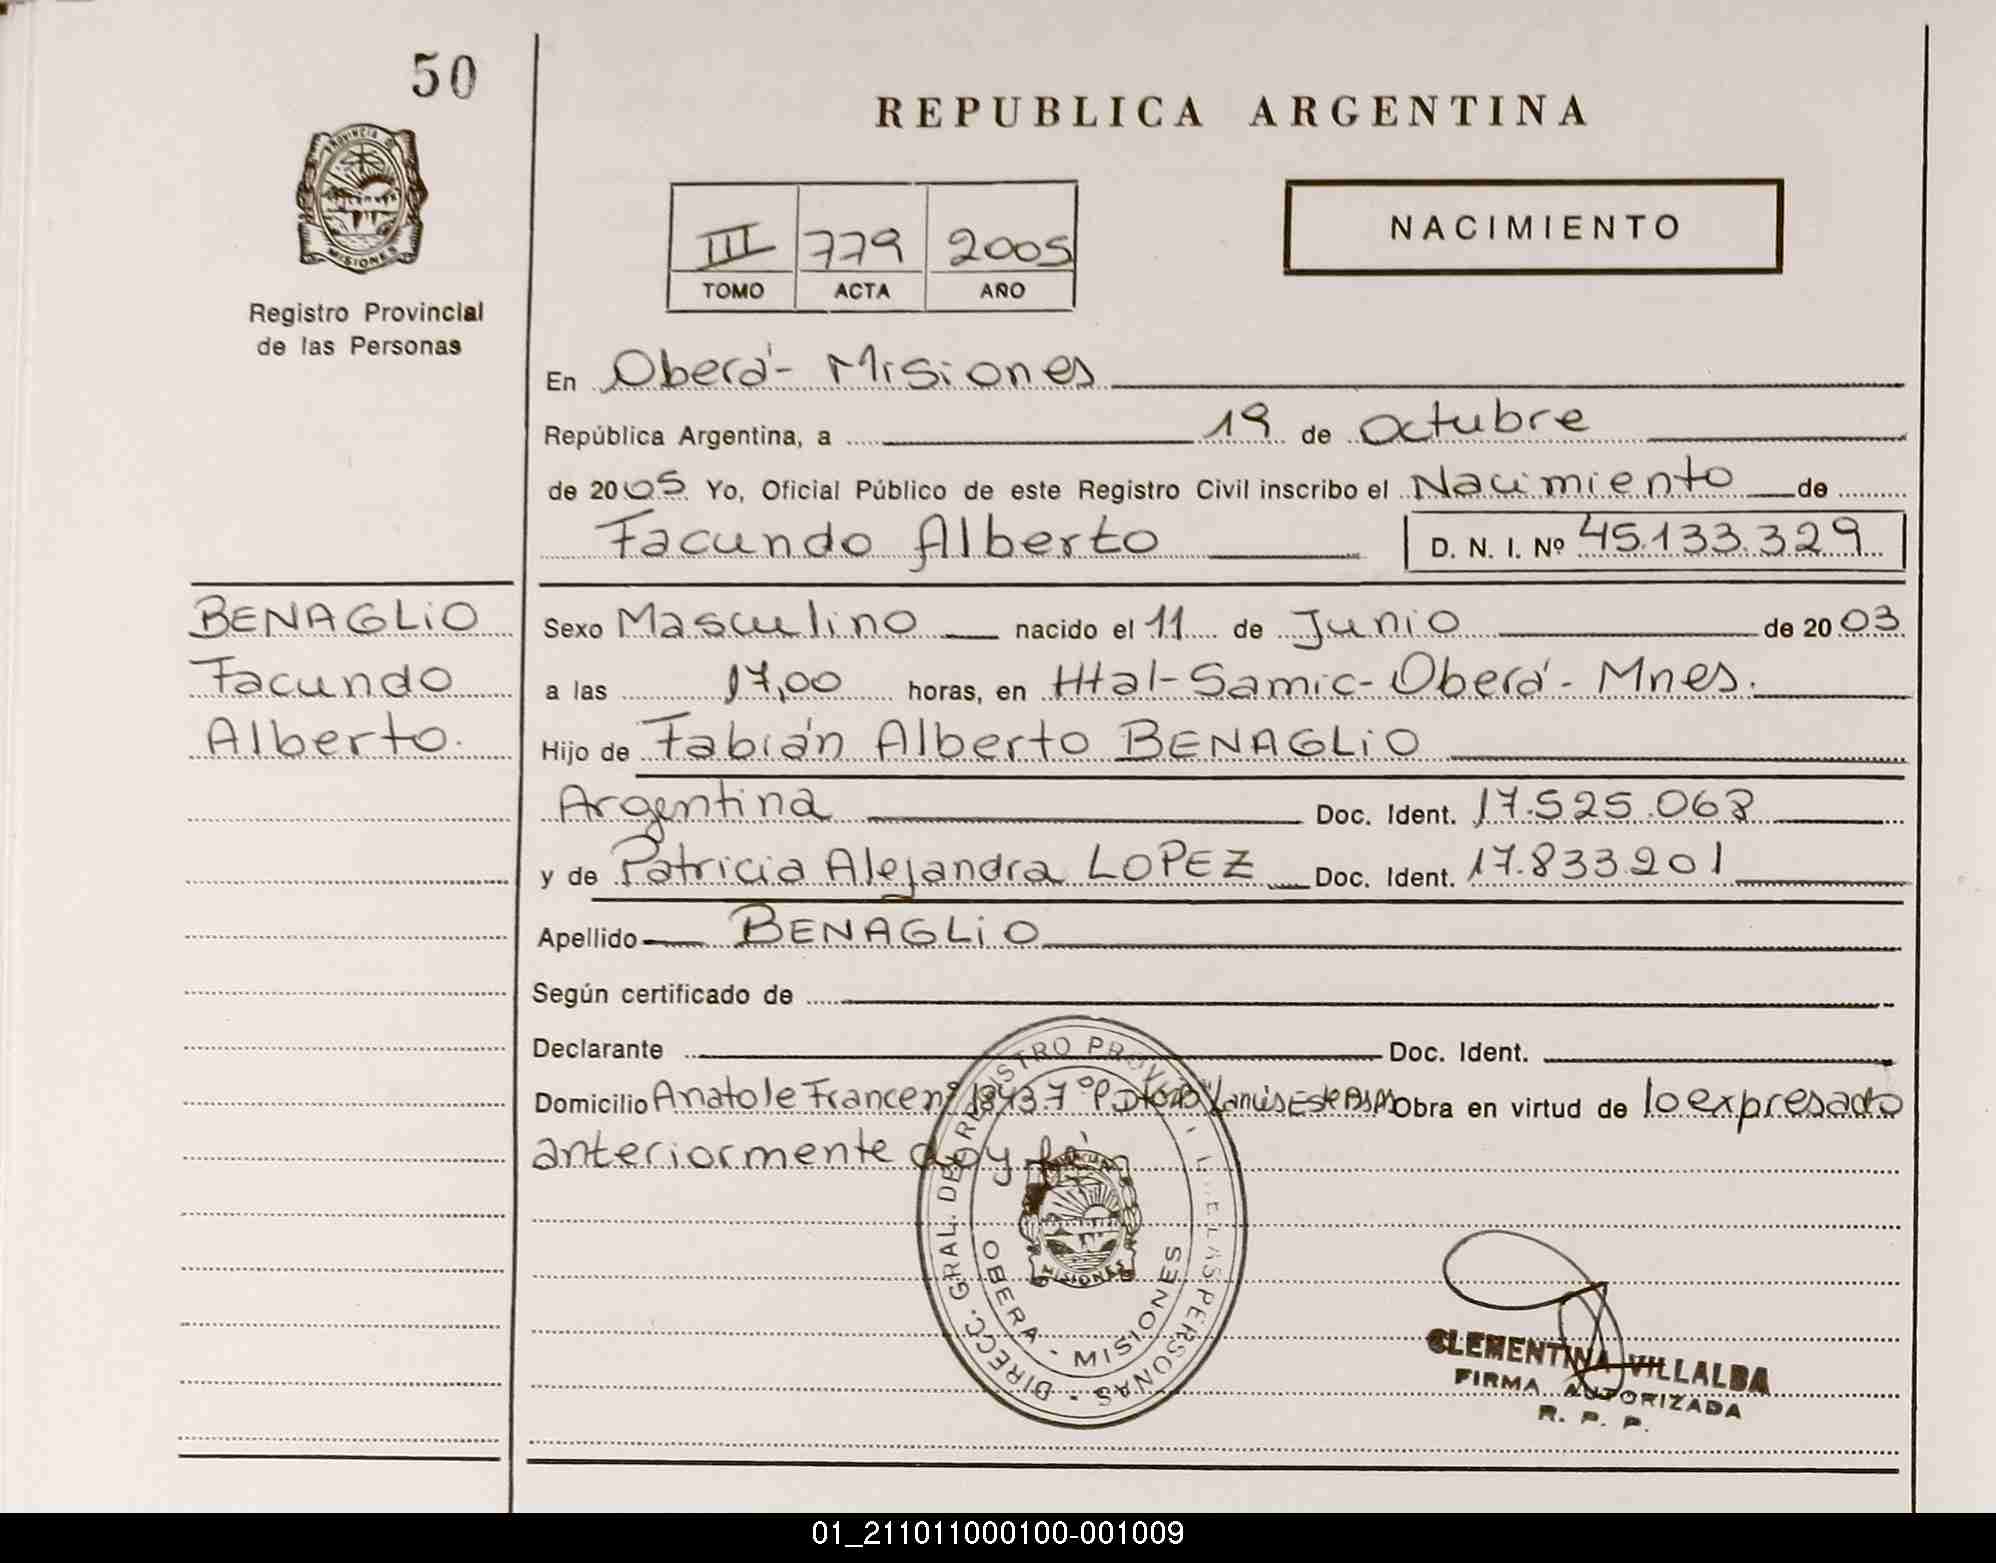 50
REPUBLICA ARGENTINA
PROVINCIA DE
MISIONES
Registro Provincial
de las Personas
NACIMIENTO
III 779 2005
TOMO ACTA AÑO
En Oberá - Misiones
República Argentina, a 19 de Octubre
de 2005 Yo, Oficial Público de este Registro Civil inscribo el Nacimiento de
Facundo Alberto D. N. I. Nº 45.133.329
BENAGLIO
Facundo
Alberto.
Sexo Masculino nacido el 11 de Junio de 2003
a las 17,00 horas, en Htal - Samic - Oberá - Mnes.
Hijo de Fabián Alberto BENAGLIO
Argentina Doc. Ident. 17.525.068
y de Patricia Alejandra LOPEZ Doc. Ident. 17.833.201
Apellido BENAGLIO
Según certificado de
Declarante Doc. Ident.
Domicilio Anatole France nº 7º P Obra en virtud de lo expresado
anteriormente doy fé
DIRECC. GRAL. DE REGISTRO PROVINCIAL DE LAS PERSONAS
OBERA - MISIONES
MISIONES
CLEMENTINA VILLALBA
FIRMA AUTORIZADA
R. P. P.
01_211011000100-001009